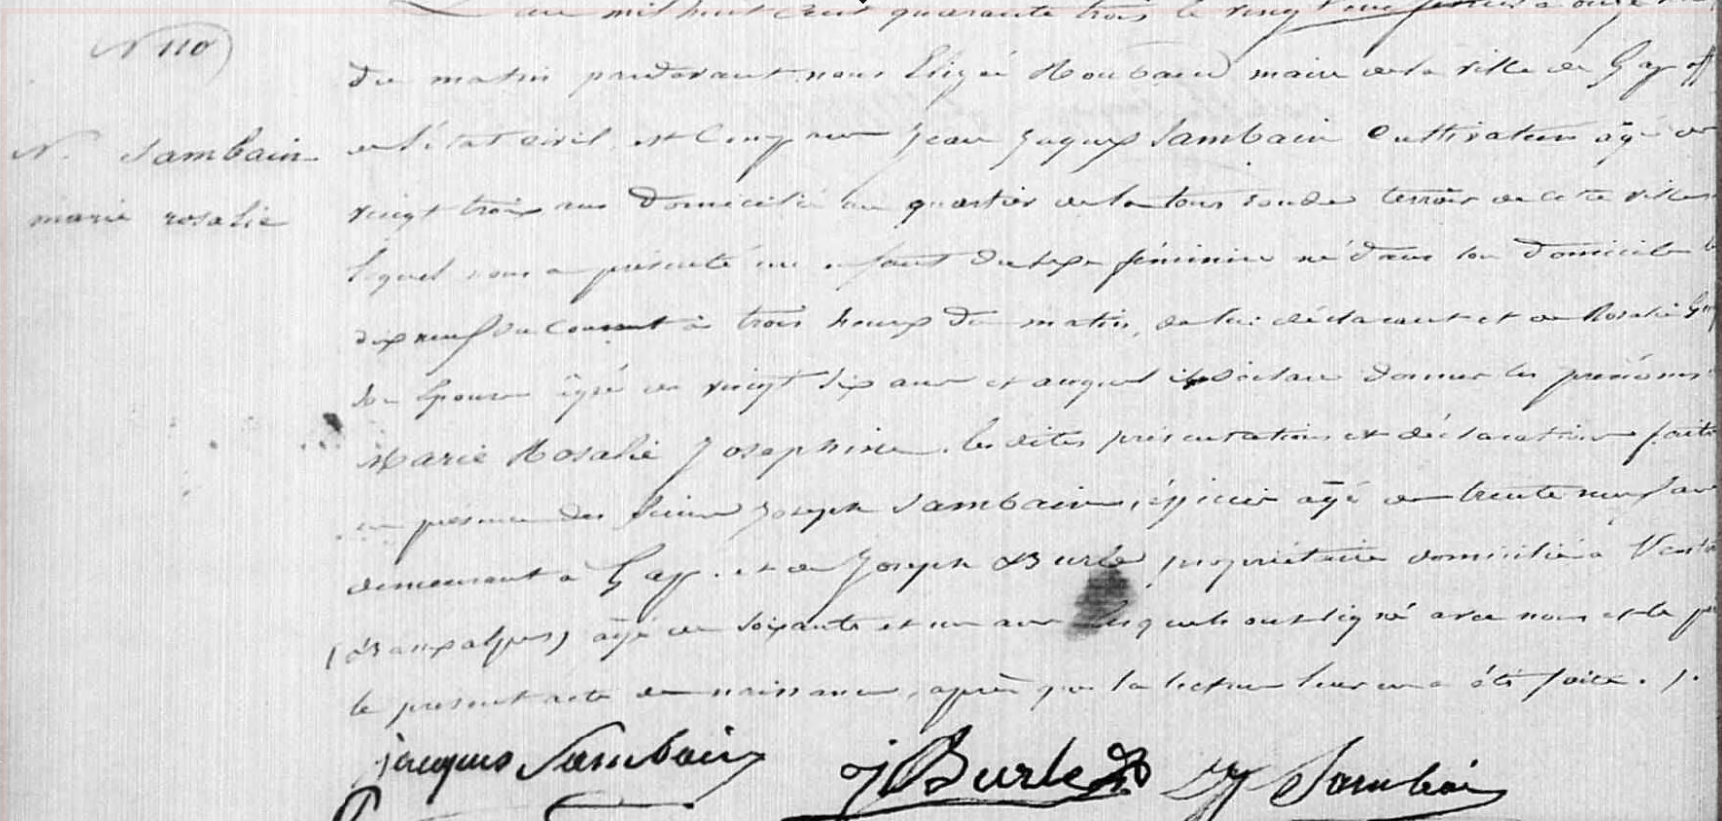 L'an mil huit cent quarante trois le vingt un à onze
N° 110
du matin pardevant nous Elizée Roubaud maire de la ville de Gap off
de l'état civil, est comparu Jean Jaques Sambain cultivateur âgé de
N. Sambain
vingt trois ans domicilié au quartier de la tour ronde terroir de cette ville
marie rosalie
lequel nous a présenté un enfant du sexe féminin né dans son domicile le
dix neuf du courant à trois heures du matin, de lui déclarant et de Rosalie
son épouse âgée de vingt six ans et auquel il déclare donner les prénoms
Marie Rosalie Josephine. les dites présentation et déclaration faites
en présence des sieurs Joseph Sambain, épicier âgé de trente neuf ans
demeurant à Gap. et de Joseph Burle propriétaire domicilié à
(Basses alpes) âgé de soixante et un ans lesquels ont signé avec nous et le
le présent acte de naissance, après que la lecture leur en a été faite. /.
jacques Sambain J Burle Sambain